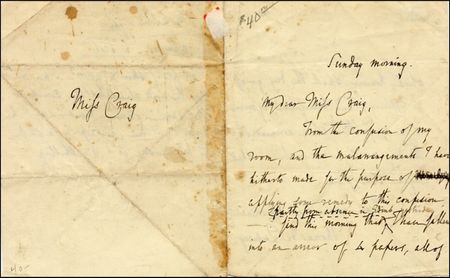 Miss Craig
$40
Sunday morning.
My dear Miss Craig,
From the confusion of my
room, and the malarrangements I have
hitherto made for the purpose of
applying some remedy to this confusion
(partly from absence in yesterday)
find this morning that I have fallen
into an arrear of 4 papers, all of